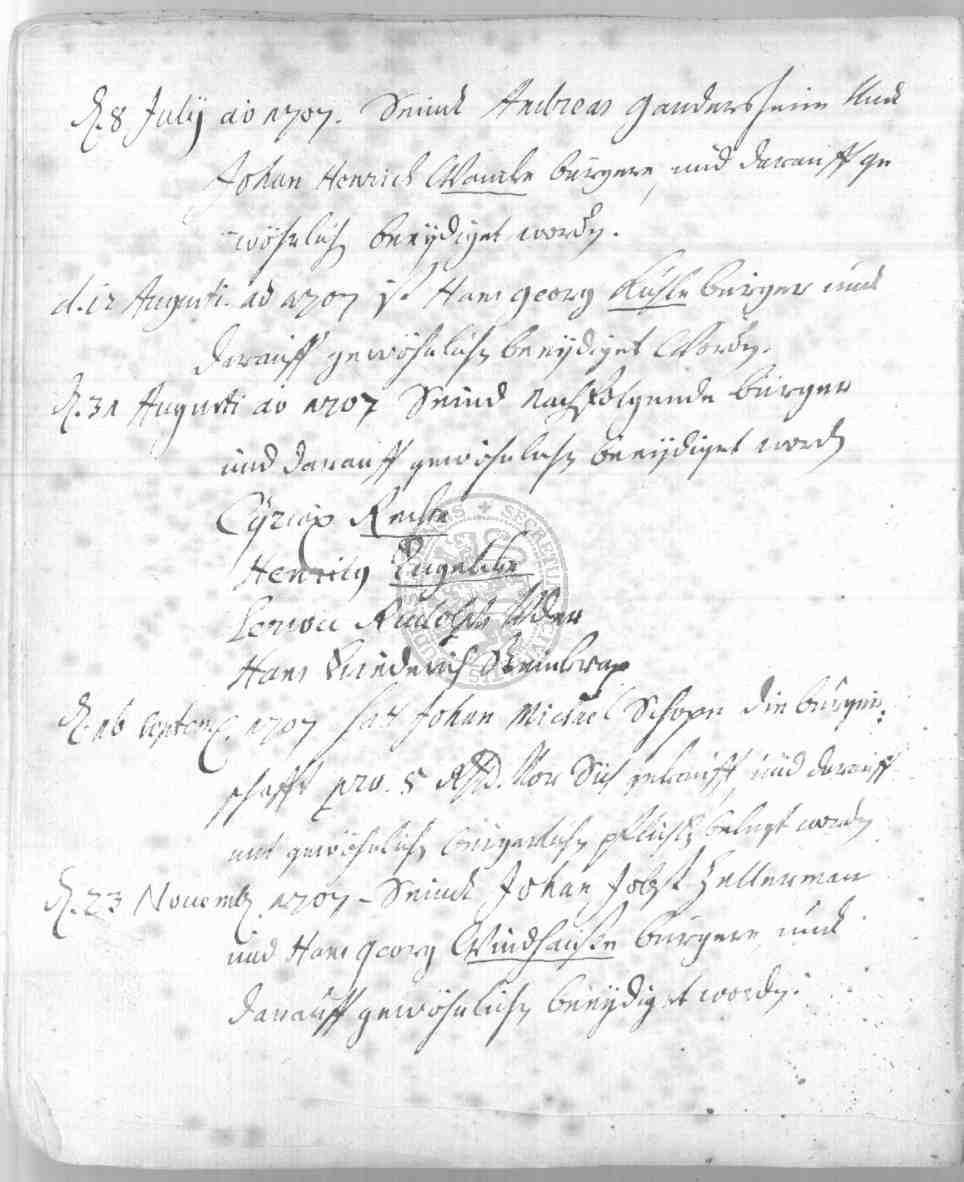 d. 8 Julÿ ao 1707. Seind Andreas Gandersheim und
Johan Henrich bürgere, und darauff ge
wöhnlich beeÿdiget worden.
d. 12 Augusti ao 1707 ist Hans Georg Kühle bürger und
darauff gewöhnlich beeÿdiget worden.
d. 31 Augusti ao 1707 Seind nachfolgende bürger
und darauff gewöhnlich beeÿdiget worden
Cÿriax
Henrich Engelke
Rudolph
Hans Friederich
d. 16 Septemb. 1707 hat Johan Michael Schoper die bürger-
schafft pro. 5 Rthl. vor Sich gekaufft, und darauff
mit gewöhnlichen bürgerlichen pflichten belegt worden
d. 23 Novemb. 1707. Seind Johan Jobst Hellerman
und Hans Georg Windhausen bürgere und
darauff gewöhnlich beeÿdiget worden.